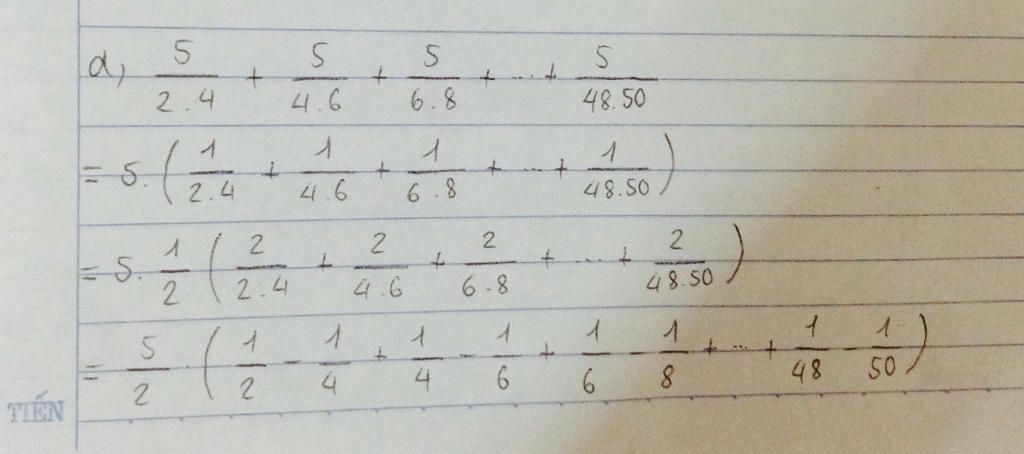 a, 5/2.4 + 5/4.6 + 5/6.8 + ... + 5/48.50
= 5. (1/2.4 + 1/4.6 + 1/6.8 + ... + 1/48.50)
= 5. 1/2 (2/2.4 + 2/4.6 + 2/6.8 + ... + 2/48.50)
= 5/2 . (1/2 - 1/4 + 1/4 - 1/6 + 1/6 - 1/8 + ... + 1/48 - 1/50)
TIẾN